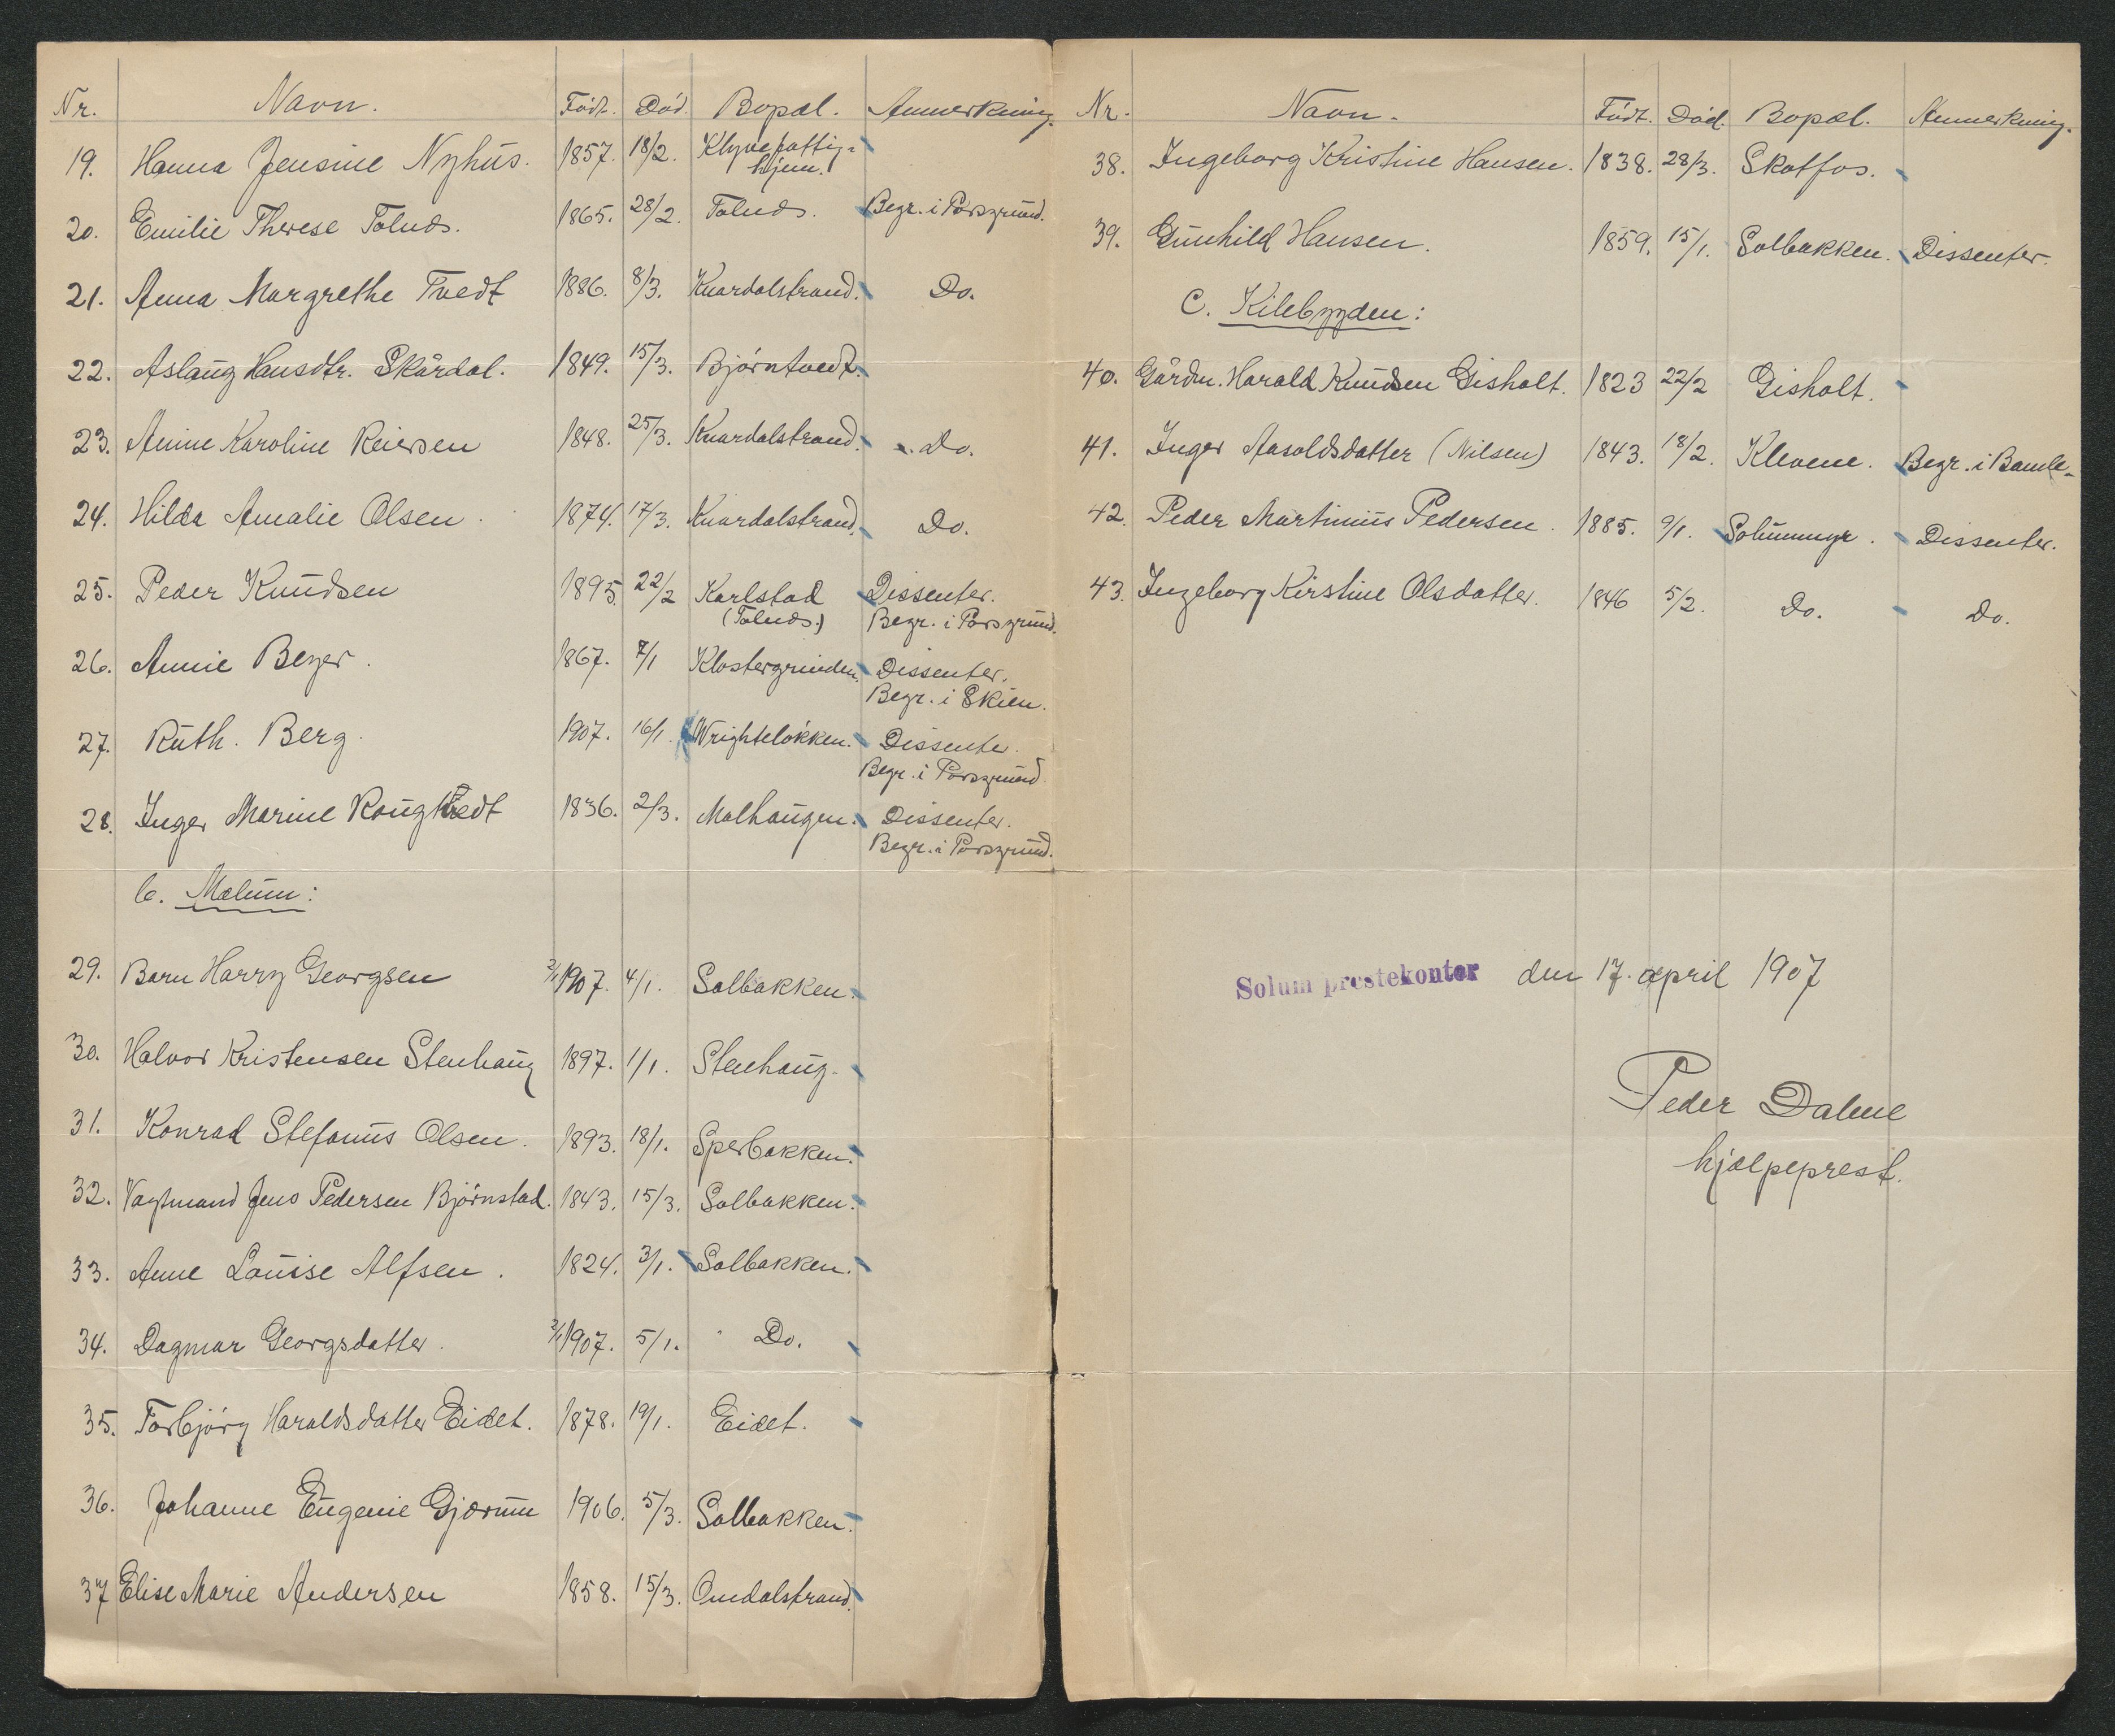 Nr. Navn. Født. Död. Bopæl. Anmerkning.
19. Hanna Jensine Nyhus. 1857. 18/2. Klyve fattig-
hjem.
20. Emilie Therese Tolnæs. 1865. 28/2. Tolnæs. Begr. i Porsgrund.
21. Anna Margrethe Tvedt 1886. 8/3. Knardalstrand. Do.
22. Aslaug Hansdtr. Skårdal. 1849. 15/3. Björntvedt.
23. Anine Karoline Reiersen 1848. 25/3. Knardalstrand. Do.
24. Hilda Amalie Olsen. 1874. 17/3. Knardalstrand. Do.
25. Peder Knudsen 1895. 22/2 Karlstad Dissenter.
(Tolnæs.) Begr. i Porsgrund.
26. Annie Beyer. 1867. 7/1 Klostergrinden. Dissenter.
Begr. i Skien.
27. Ruth. Berg. 1907. 16/1. Wrightelökken. Dissenter.
Begr. i Porsgrund
28. Inger Marine 1836. 2/3. Malhaugen. Dissenter.
Begr. i Porsgrund.
b. Mælum:
29. Barn Harry Georgsen 2/1 1907. 4/1. Solbakken.
30. Halvor Kristensen Stenhaug 1897. 1/1. Stenhaug.
31. Konrad Stefanus Olsen. 1893. 18/1. Sperbakken.
32. Vagtmand Jens Pedersen Björnstad. 1843. 15/3. Solbakken.
33. Anne Louise Alfsen. 1824. 3/1. Solbakken.
34. Dagmar Georgsdatter. 2/1 1907. 5/1. Do.
35. Torbjörg Haraldsdatter Eidet. 1878. 19/1. Eidet.
36. Johanne Eugenie Gjærum 1906. 5/3. Solbakken.
37 Elise Marie Andersen 1858. 15/3. Omdalstrand.
Nr. Navn. Födt. Död. Bopæl. Anmerkning.
38. Ingeborg Kristine Hansen. 1838. 28/3. Skotfos.
39. Gunhild Hansen. 1859. 15/1. Solbakken. Dissenter.
C. Kilebygden:
40. Gårdm. Harald Knudsen Gisholt. 1823 22/2 Gisholt.
41. Inger Aasoldsdatter (Nilsen) 1843. 18/2. Klevene. Begr. i Bamle.
42. Peder Martinius Pedersen. 1885. 9/1. Solummyr. Dissenter.
43. Ingeborg Kirstine Olsdatter. 1846 5/2. Do. Do.
Solum prestekontor den 17. april 1907
Peder Dahle
hjælpeprest.